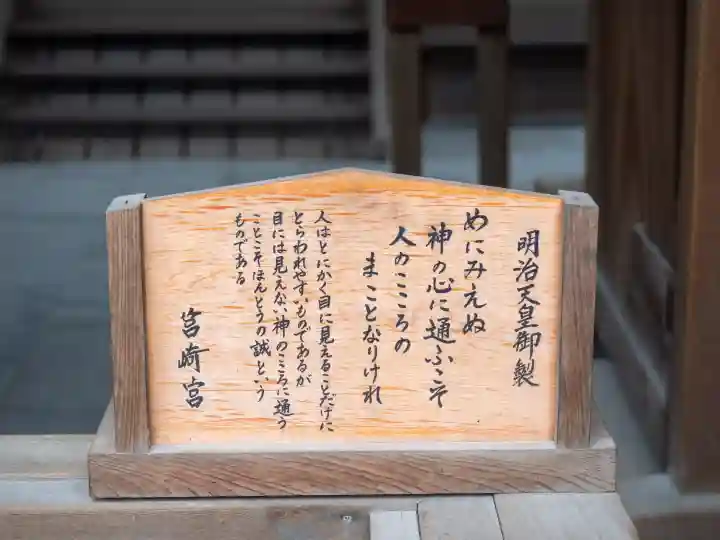 明治天皇御製
めにみえぬ
神の心に通ふこそ
人のこころの
まことなりけれ
人はとにかく目に見えることだけに
とらわれやすいものであるが
目には見えない神のこころに通う
ことこそほんとうの誠という
ものである
筥崎宮